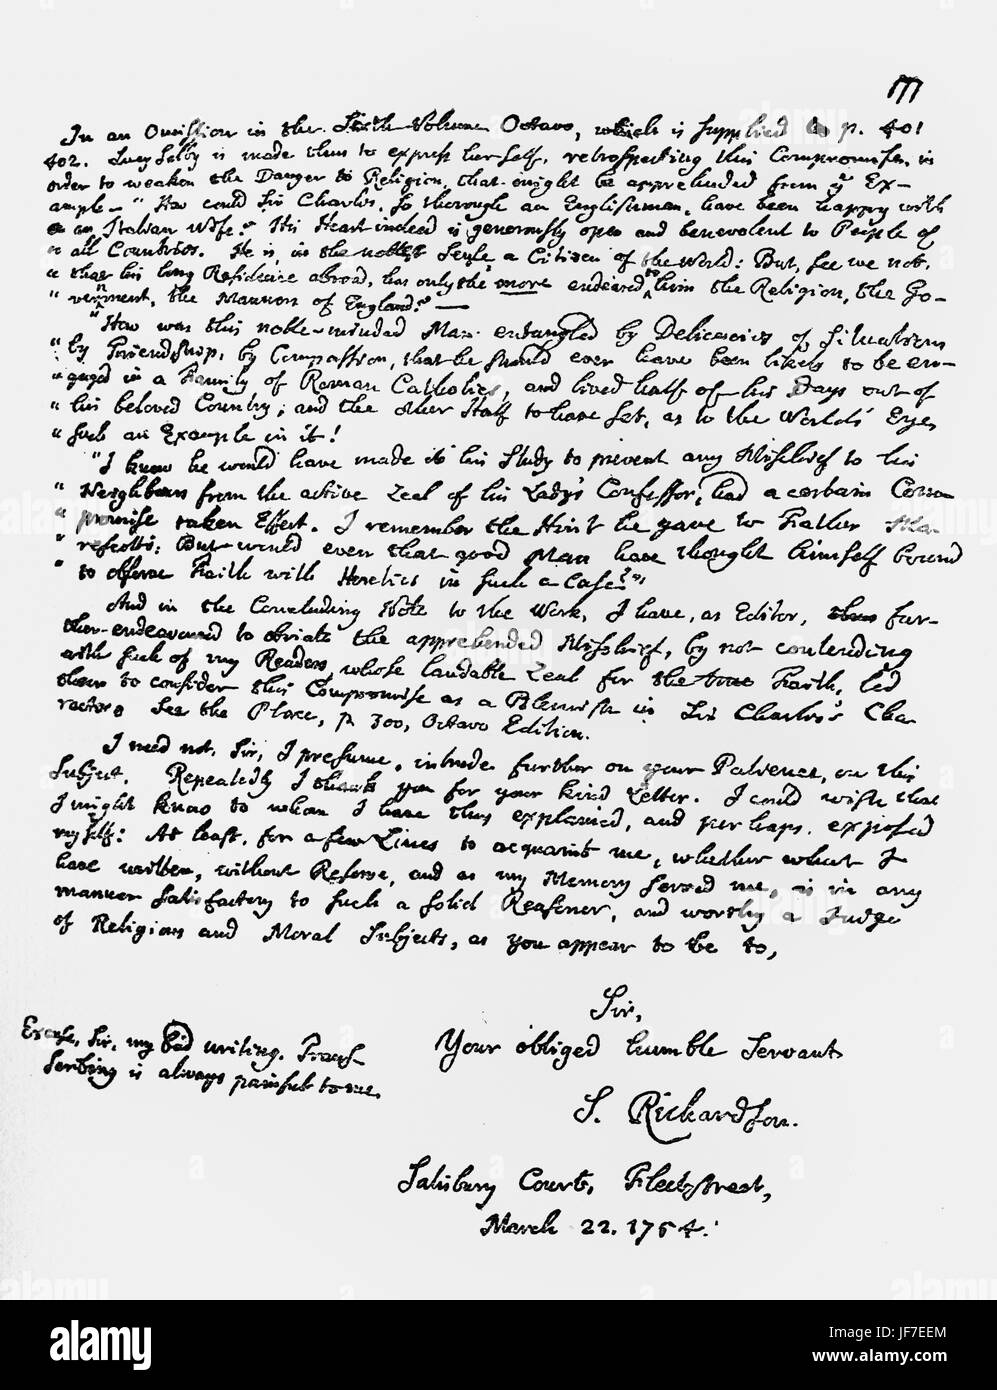 In an Omission in the Sixth Volume Octavo, which is supplied in p. 401
402. Lucy Selby is made thus to express herself, retrospecting this Compromise, in
order to weaken the Danger to Religion, that might be apprehended from ye Ex-
ample — "How could Sir Charles, so thorough an Englishman, have been happy with
" an Italian Wife? His Heart indeed is generously open and benevolent to People of
" all Countries. He is, in the noblest Sense a Citizen of the World: But, see we not,
" that his long Residence abroad, has only the more endeared to him the Religion, the Go-
" vernment, the Manners of England? —
"How was this noble-minded Man entangled by Delicacies of Situation
" by Friendship, by Compassion, that he should ever have been likely to be en-
" gaged in a Family of Roman Catholics, and lived half of his Days out of
" his beloved Country; and the other Half to have set, as to the World's Eye,
" such an Example in it!
"I know he would have made it his Study to prevent any Mischief to his
" Neighbours from the active Zeal of his Lady's Confessor, had a certain Com-
" promise taken Effect. I remember the Hint he gave to Father Ma-
" rescotti: But would even that good Man have thought himself bound
" to observe Faith with Heretics in such a Case?"
And in the Concluding Note to the Work, I have, as Editor, thus fur-
ther endeavoured to obviate the apprehended Mischief, by not contending
with such of my Readers, whose laudable Zeal for the true Faith, led
them to consider this Compromise as a Blemish in Sir Charles's Cha-
racter. See the Place, p. 300, Octavo Edition.
I need not, Sir, I presume, intrude further on your Patience, on this
Subject. Repeatedly I thank you for your kind Letter. I could wish that
I might know to whom I have thus explained, and perhaps exposed
myself: At least, for a few Lines to acquaint me, whether what I
have written, without Reserve, and as my Memory served me, is in any
manner satisfactory to such a solid Reasoner, and worthy a Judge
of Religious and Moral Subjects, as you appear to be to,
Sir,
Your obliged humble Servant
S. Richardson.
Excuse, Sir, my bad writing. Tran-
scribing is always painful to me.
Salisbury Court, Fleetstreet,
March 22. 1754.
alamy
Image ID: JF7EEM
www.alamy.com